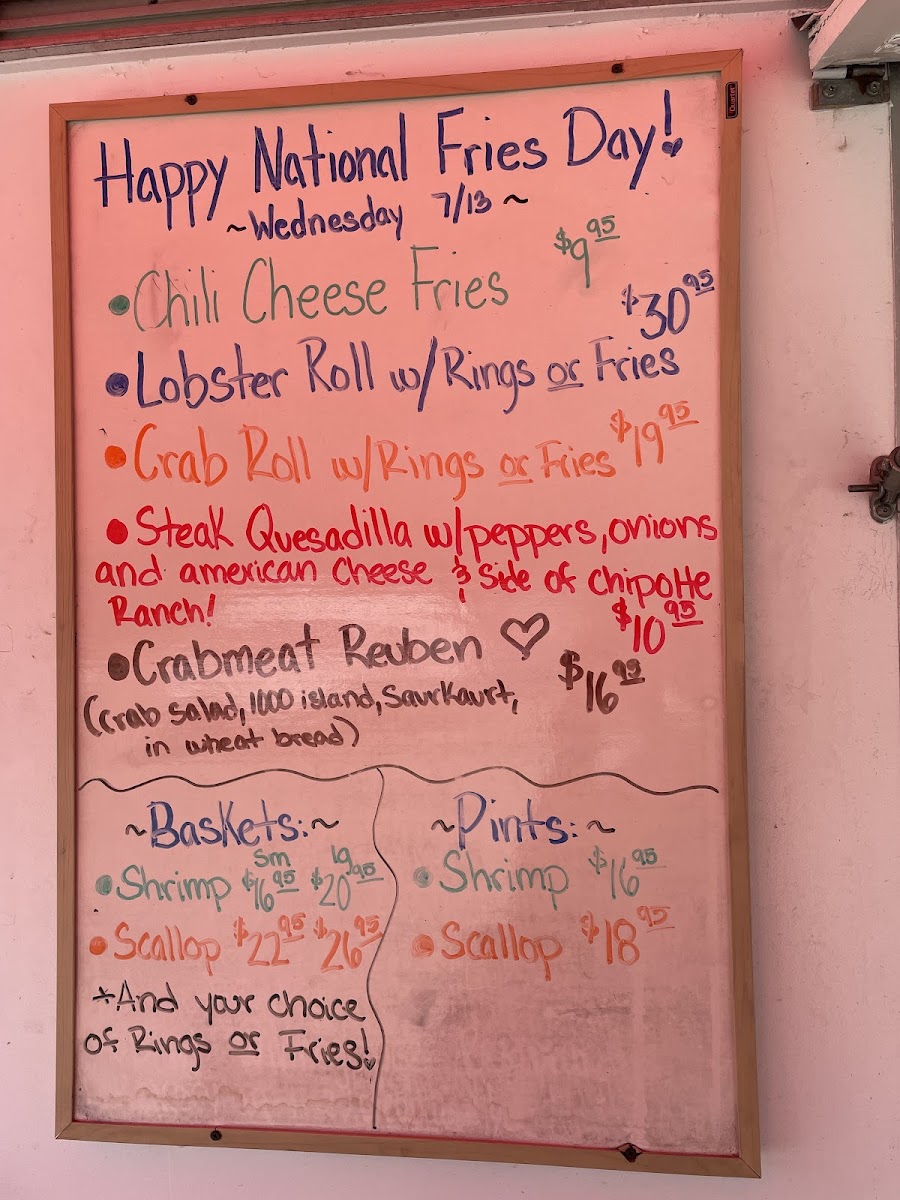 Quartet
Happy National Fries Day!
~Wednesday 7/13~
•Chili Cheese Fries $9.95
$30.95
•Lobster Roll w/Rings or Fries
•Crab Roll w/Rings or Fries $19.95
•Steak Quesadilla w/peppers, onions
and american cheese & Side of Chipotle
Ranch!
$10.95
•Crabmeat Reuben ♡
$16.95
(Crab salad, 1000 island, Saurkaurt,
in wheat bread)
~Baskets:~
sm lg
•Shrimp $16.95 $20.95
•Scallop $22.95 $26.95
*And your choice
of Rings or Fries!
~Pints:~
•Shrimp $16.95
•Scallop $18.95